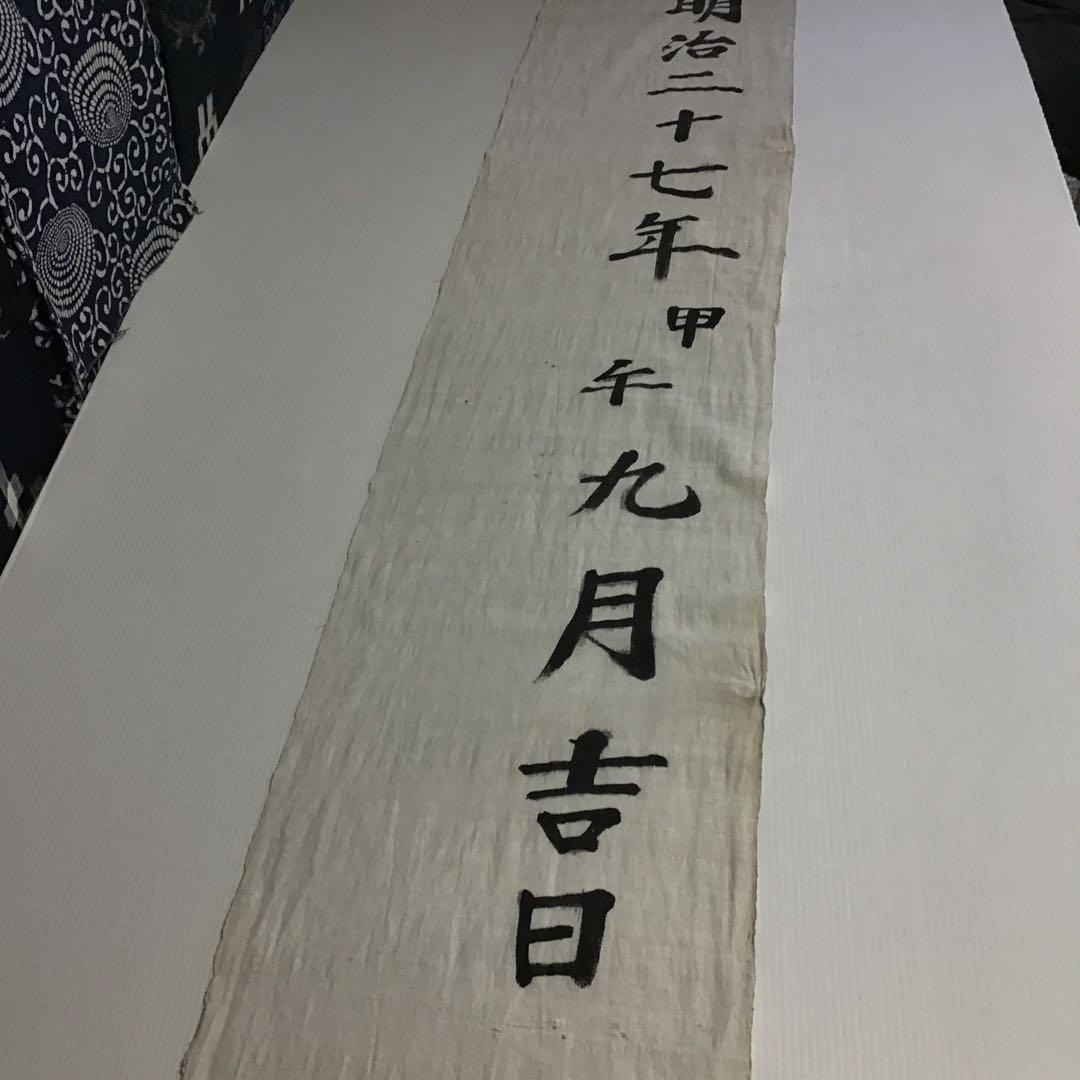 明治二十七年甲午九月吉日